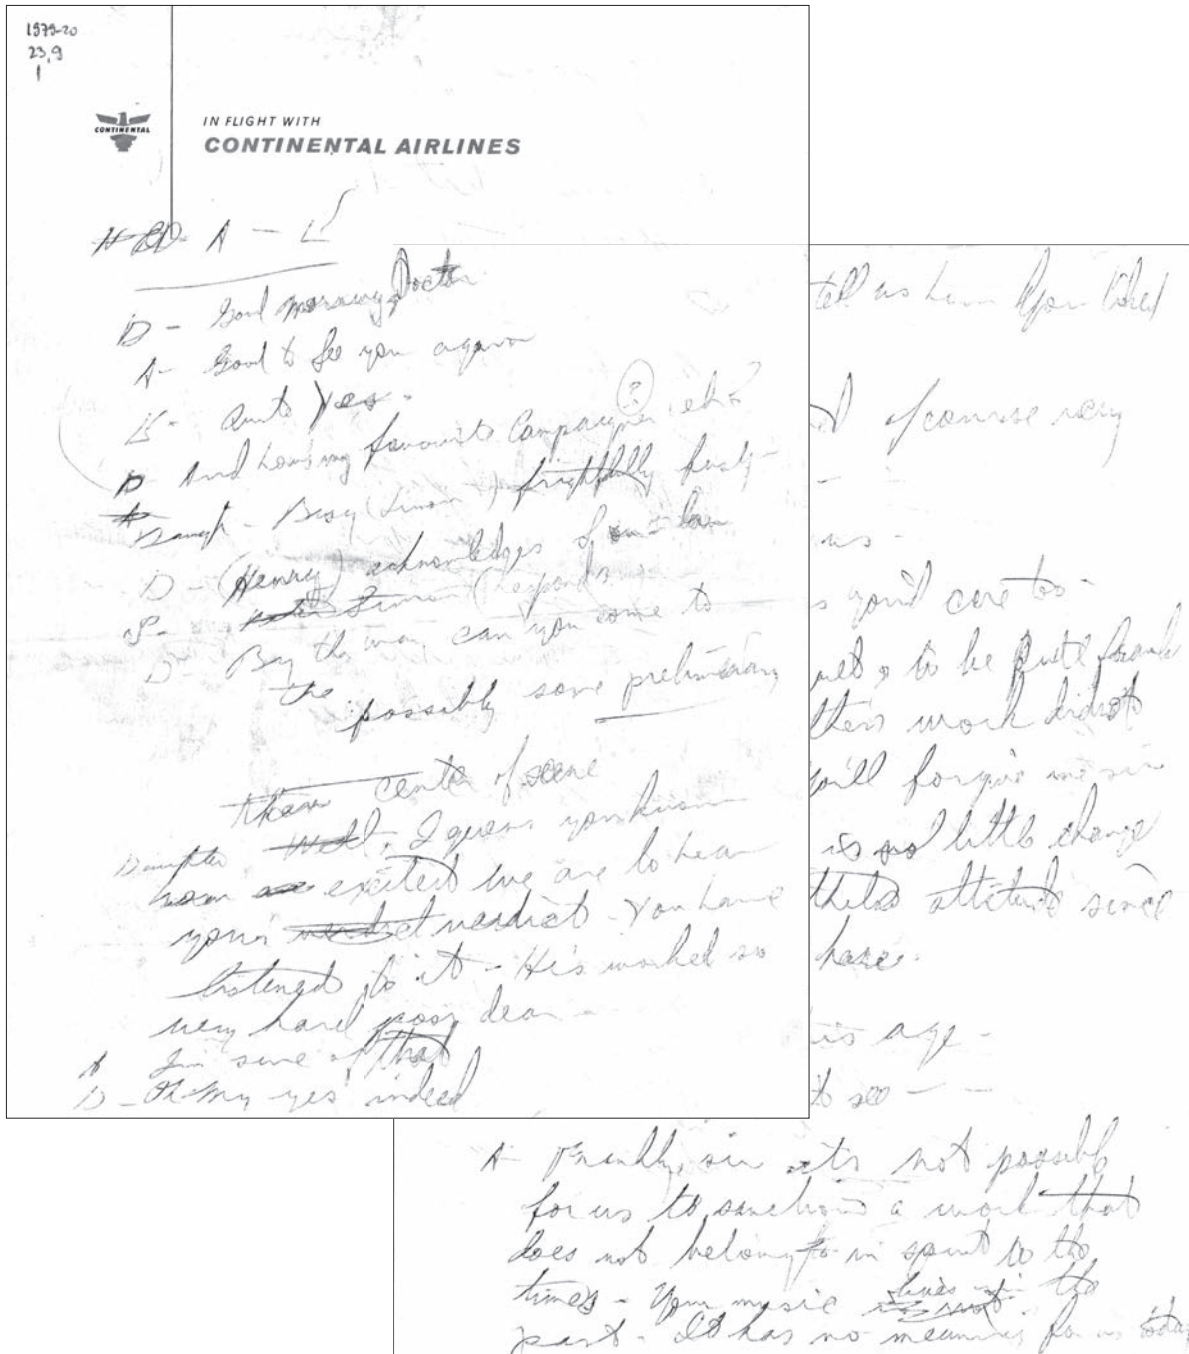 1979-20
23,9
1
CONTINENTAL
IN FLIGHT WITH
CONTINENTAL AIRLINES
A - L
D - Good morning, Doctor
A - Good to see you again
L - Quite Yes.
?
D And hows my favourite Campaigner eh?
Daught - Busy (Simon) frightfully busy -
D - (Henry) acknowledges
S - Simon (responds
D - By the way can you come to
the
possibly some preliminary
center of scene
Daughter I guess you know
how excited we are to hear
your verdict - You have
listened to it - He's worked so
very hard poor dear -
A I'm sure of that
D - Oh my yes indeed
tell us how you liked
of course very
us -
you'd care to -
to be quite frank
work didn't
you'll forgive me sir
is little change
attitude since
here.
his age -
to see - -
A - Frankly, sir its not possible
for us to sanction a work that
does not belong in spirit to the
times - Your music lives in the
past - It has no meaning for us today